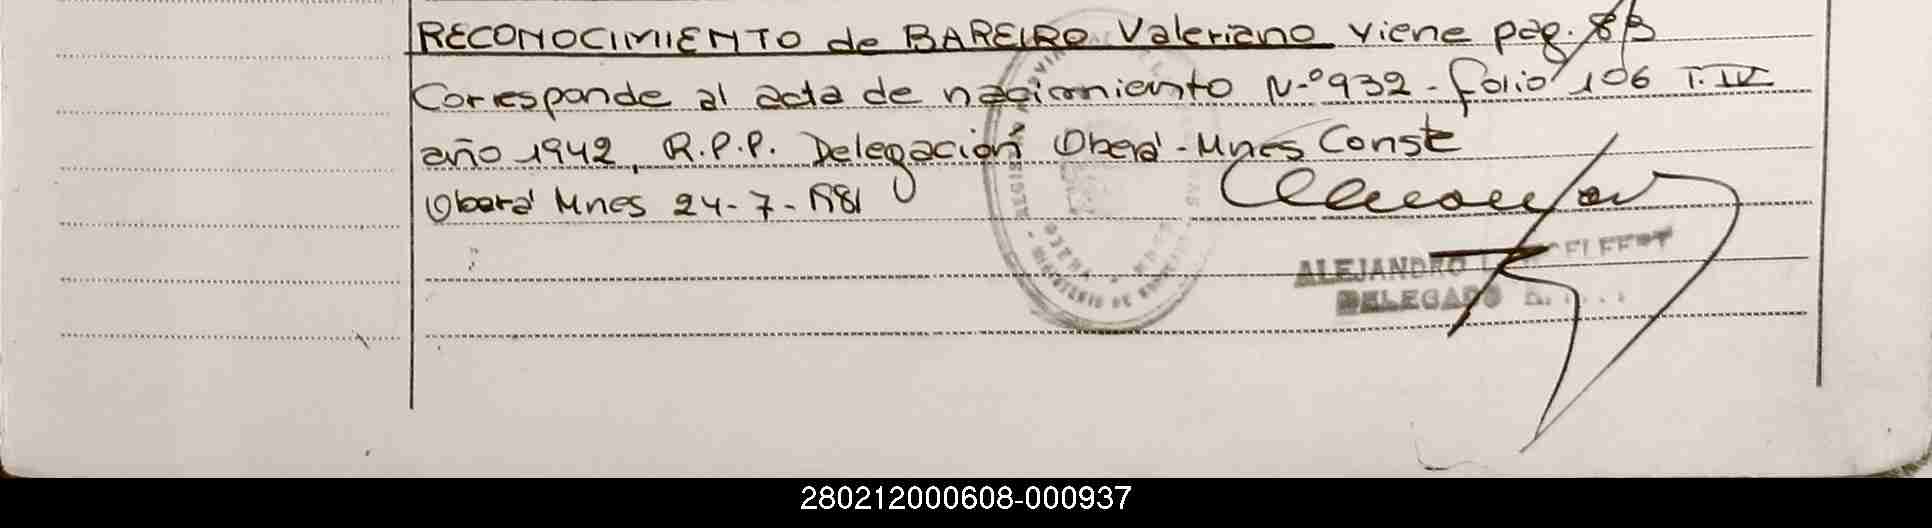 RECONOCIMIENTO de BAREIRO Valeriano viene pag. 83
Corresponde al acta de nacimiento N.º 932 - folio 106 T. IV
año 1942, R.P.P. Delegación Oberá - Mnes Conste
Oberá Mnes 24-7-1981
ALEJANDRO
DELEGADO
280212000608-000937